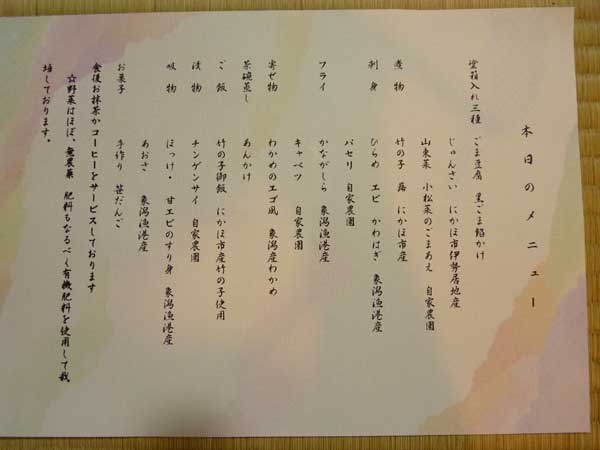 本日のメニュー
塗箱入れ三種 ごま豆腐 黒ごま餡かけ
じゅんさい にかほ市伊勢居地産
山東菜 小松菜のごまあえ 自家農園
煮物 竹の子 蕗 にかほ市産
刺身 ひらめ エビ かわはぎ 象潟漁港産
パセリ 自家農園
フライ かながしら 象潟漁港産
キャベツ 自家農園
寄せ物 わかめのエゴ風 象潟産わかめ
茶碗蒸し あんかけ
ご飯 竹の子御飯 にかほ市産竹の子使用
漬物 チンゲンサイ 自家農園
吸物 ほっけ・甘エビのすり身 象潟漁港産
あおさ 象潟漁港産
お菓子 手作り 笹だんご
食後お抹茶かコーヒーをサービスしております
☆野菜はほぼ、無農薬 肥料もなるべく有機肥料を使用して栽
培しております。